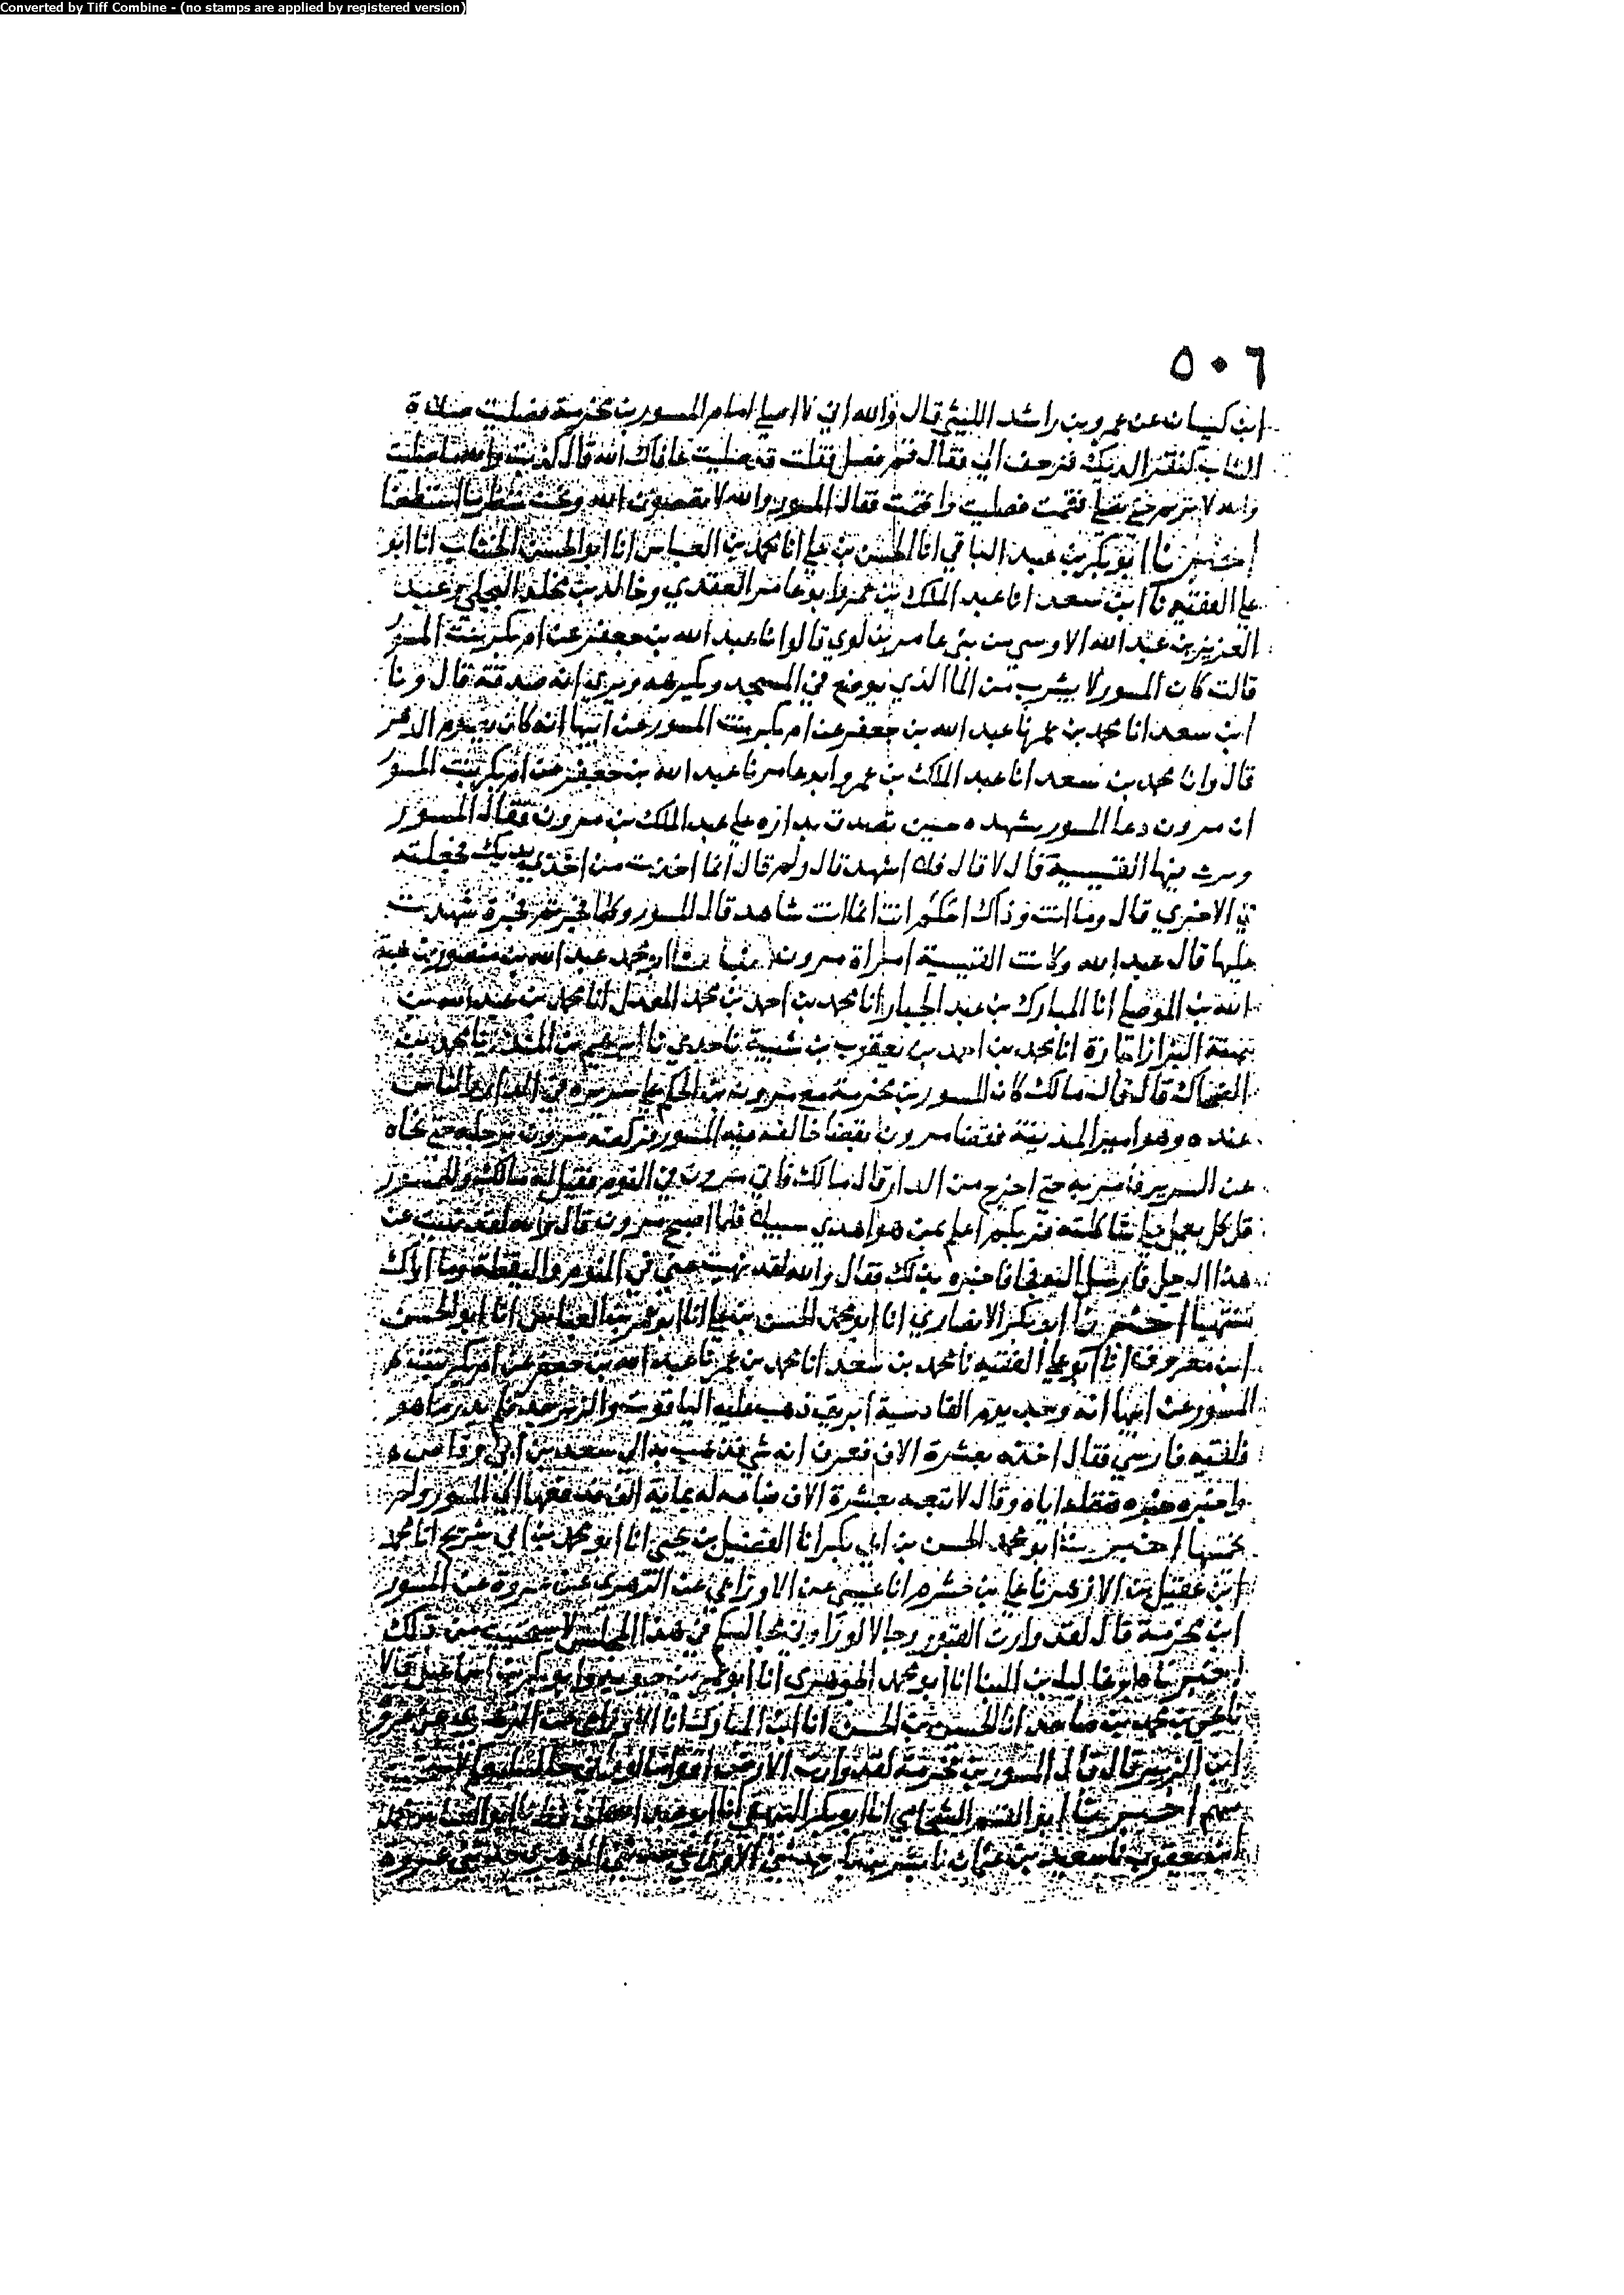 Converted by Tiff Combine - (no stamps are applied by registered version)
٥٠٦
ابن كيسان عن عمرو بن راشد الليثي قال والله اني لا اصلي امام المسور بن مخرمة فصليت صلاة
الشاب كنقر الديك فزحف الي فقال قم فصل فقلت قد صليت عافاك الله قال كذبت والله ما صليت
والله لا تريم حتى تصلي فقمت فصليت واتممت فقال المسور والله لا تعصون الله ونحن ننظر ما استطعنا
اخبرنا ابو بكر بن عبد الباقي انا الحسن بن علي انا محمد بن العباس انا ابو الحسن الخشاب انا ابو
علي الفقيه نا ابن سعد انا عبد الملك بن عمرو ابو عامر العقدي وخالد بن مخلد البجلي وعبد
العزيز بن عبد الله الاوسي من بني عامر بن لوي قالوا نا عبد الله بن جعفر عن ام بكر بنت المسور
قالت كان المسور لا يشرب من الما الذي يوضع في المسجد ويكرهه ويرى انه صدقة قال ونا
ابن سعد انا محمد بن عمر نا عبد الله بن جعفر عن ام بكر بنت المسور عن ابيها انه كان يصوم الدهر
قال وانا محمد بن سعد انا عبد الملك بن عمرو ابو عامر نا عبد الله بن جعفر عن ام بكر بنت المسور
ان مرون دعا المسور يشهده حين تصدق بداره علي عبد الملك بن مرون فقال المسور
وترث فيها القيسية قال لا قال فلا اشهد قال ولم قال انما اخذت من احدى يديك فجعلته
في الاخرى قال وما انت وذاك احكم انت انما انت شاهد قال المسور وكلما فجرتم فجرة شهدت
عليها قال عبد الله وكانت القيسية امراة مرون انبانا ابو محمد عبد الله بن منصور بن هبة
الله بن الموصلي انا المبارك بن عبد الجبار انا محمد بن احمد بن محمد المعدل انا محمد بن عبد الله بن
البزاز اجازة انا محمد بن احمد بن يعقوب بن شيبة نا جدي نا ابرهيم بن المنذر نا محمد بن
الضحاك قال قال مالك كان المسور بن مخرمة مع مرون بن الحكم على سريره في الدار والناس
عنده وهو امير المدينة فقضا مرون بقضا خالفه فيه المسور فركضه مرون برجله حتى نحاه
عن السرير حتى اخرج من الدار قال مالك فاتي مرون في النوم فقيل له مالك وللمسور
قل كل يعمل على شاكلته فربكم اعلم بمن هو اهدى سبيلا فلما اصبح مرون قال والله لقد نهيت عن
هذا الرجل فارسل اليه فاخبره بذلك فقال والله لقد نهيت عني في النوم واليقظة وما اراك
تنتهي اخبرنا ابو بكر الانصاري انا ابو محمد الحسن بن علي انا ابو عمر بن العباس انا ابو الحسن
ابن معروف انا ابو علي الفقيه نا محمد بن سعد انا محمد بن عمر نا عبد الله بن جعفر عن ام بكر بنت
المسور عن ابيها انه وجد يوم القادسية ابريق ذهب عليه الياقوت والزبرجد فلم يدر ما هو
فلقيه فارسي فقال اخذه بعشرة الاف فعرف انه شي فذهب به الى سعد بن ابي وقاص
واخبره خبره فنفله اياه وقال لا تبعه بعشرة الاف فباعه له بماية الف فدفعها الى المسور ولم
يخمسها اخبرنا ابو محمد الحسن بن ابي بكر انا الفضيل بن يحيى انا ابو محمد بن ابي شريح انا محمد
ابن عقيل بن الازهر نا علي بن خشرم انا عيسى عن الاوزاعي عن الزهري عن عروة عن المسور
ابن مخرمة قال لقد وارت القبور رجالا لو راوني مجالسكم في هذا المجلس لاستحييت من ذلك
اخبرنا ابو غالب بن البنا انا ابو محمد الجوهري انا ابو عمر بن حيويه وابو بكر بن اسماعيل قالا
نا يحيى بن محمد بن صاعد انا الحسين بن الحسن انا ابن المبارك انا الاوزاعي عن الزهري عن عروة
ابن الزبير قال قال المسور بن مخرمة لقد وارت الارض اقواما لو راوني جالسا معكم لاستحييت
منهم اخبرنا ابو القسم الشحامي انا ابو بكر البيهقي انا ابو عبد الله الحافظ نا ابو العباس محمد
ابن يعقوب نا سعيد بن عثمان نا بشر بن بكر حدثني الاوزاعي حدثني الزهري حدثني عروة